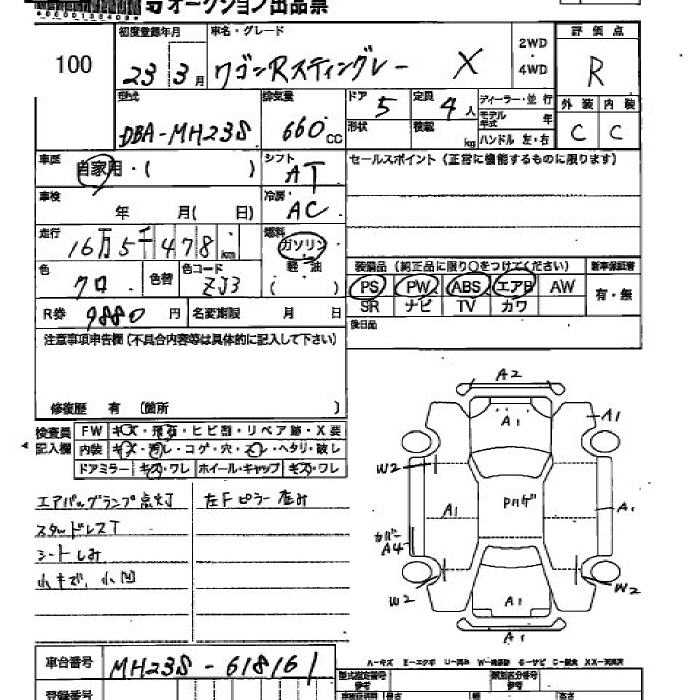 オークション出品票
100
初度登録年月
23年3月
車名・グレード
ワゴンRスティングレー X
2WD
4WD
評価点
R
型式
DBA-MH23S
排気量
660cc
ドア
5
形状
定員
4人
積載
kg
ディーラー・並行
モデル年式 年
ハンドル 左・右
外装 内装
C C
車歴
自家用・( )
シフト
AT
セールスポイント(正常に機能するものに限ります)
車検
年 月( 日)
冷房
AC
走行
16万5千478km
燃料
ガソリン
軽油
( )
色
クロ
色替
色コード
ZJ3
装備品(純正品に限り○をつけてください)
新車保証書
PS PW ABS エアB AW
有・無
SR ナビ TV カワ
R券 9880円
名変期限 月 日
後日品
注意事項申告欄(不具合内容等は具体的に記入して下さい)
修復歴 有 (箇所 )
検査員記入欄
FW キズ・飛石・ヒビ割・リペア跡・X要
内装 キズ・汚レ・コゲ・穴・スレ・ヘタリ・破レ
ドアミラー キズ・ワレ ホイール・キャップ キズ・ワレ
エアバッグランプ点灯
左Fピラー歪み
スタッドレスT
シートしみ
小キズ、小凹
A2
A1
A1
W2
A1
Pハゲ
A1
カバー
A4
W2
A1
W2
A1
A-キズ E-エクボ U-凹み W-補修跡 S-サビ C-腐食 XX-交換済
車台番号
MH23S-618161
登録番号
型式指定番号
参考
類別区分番号
参考